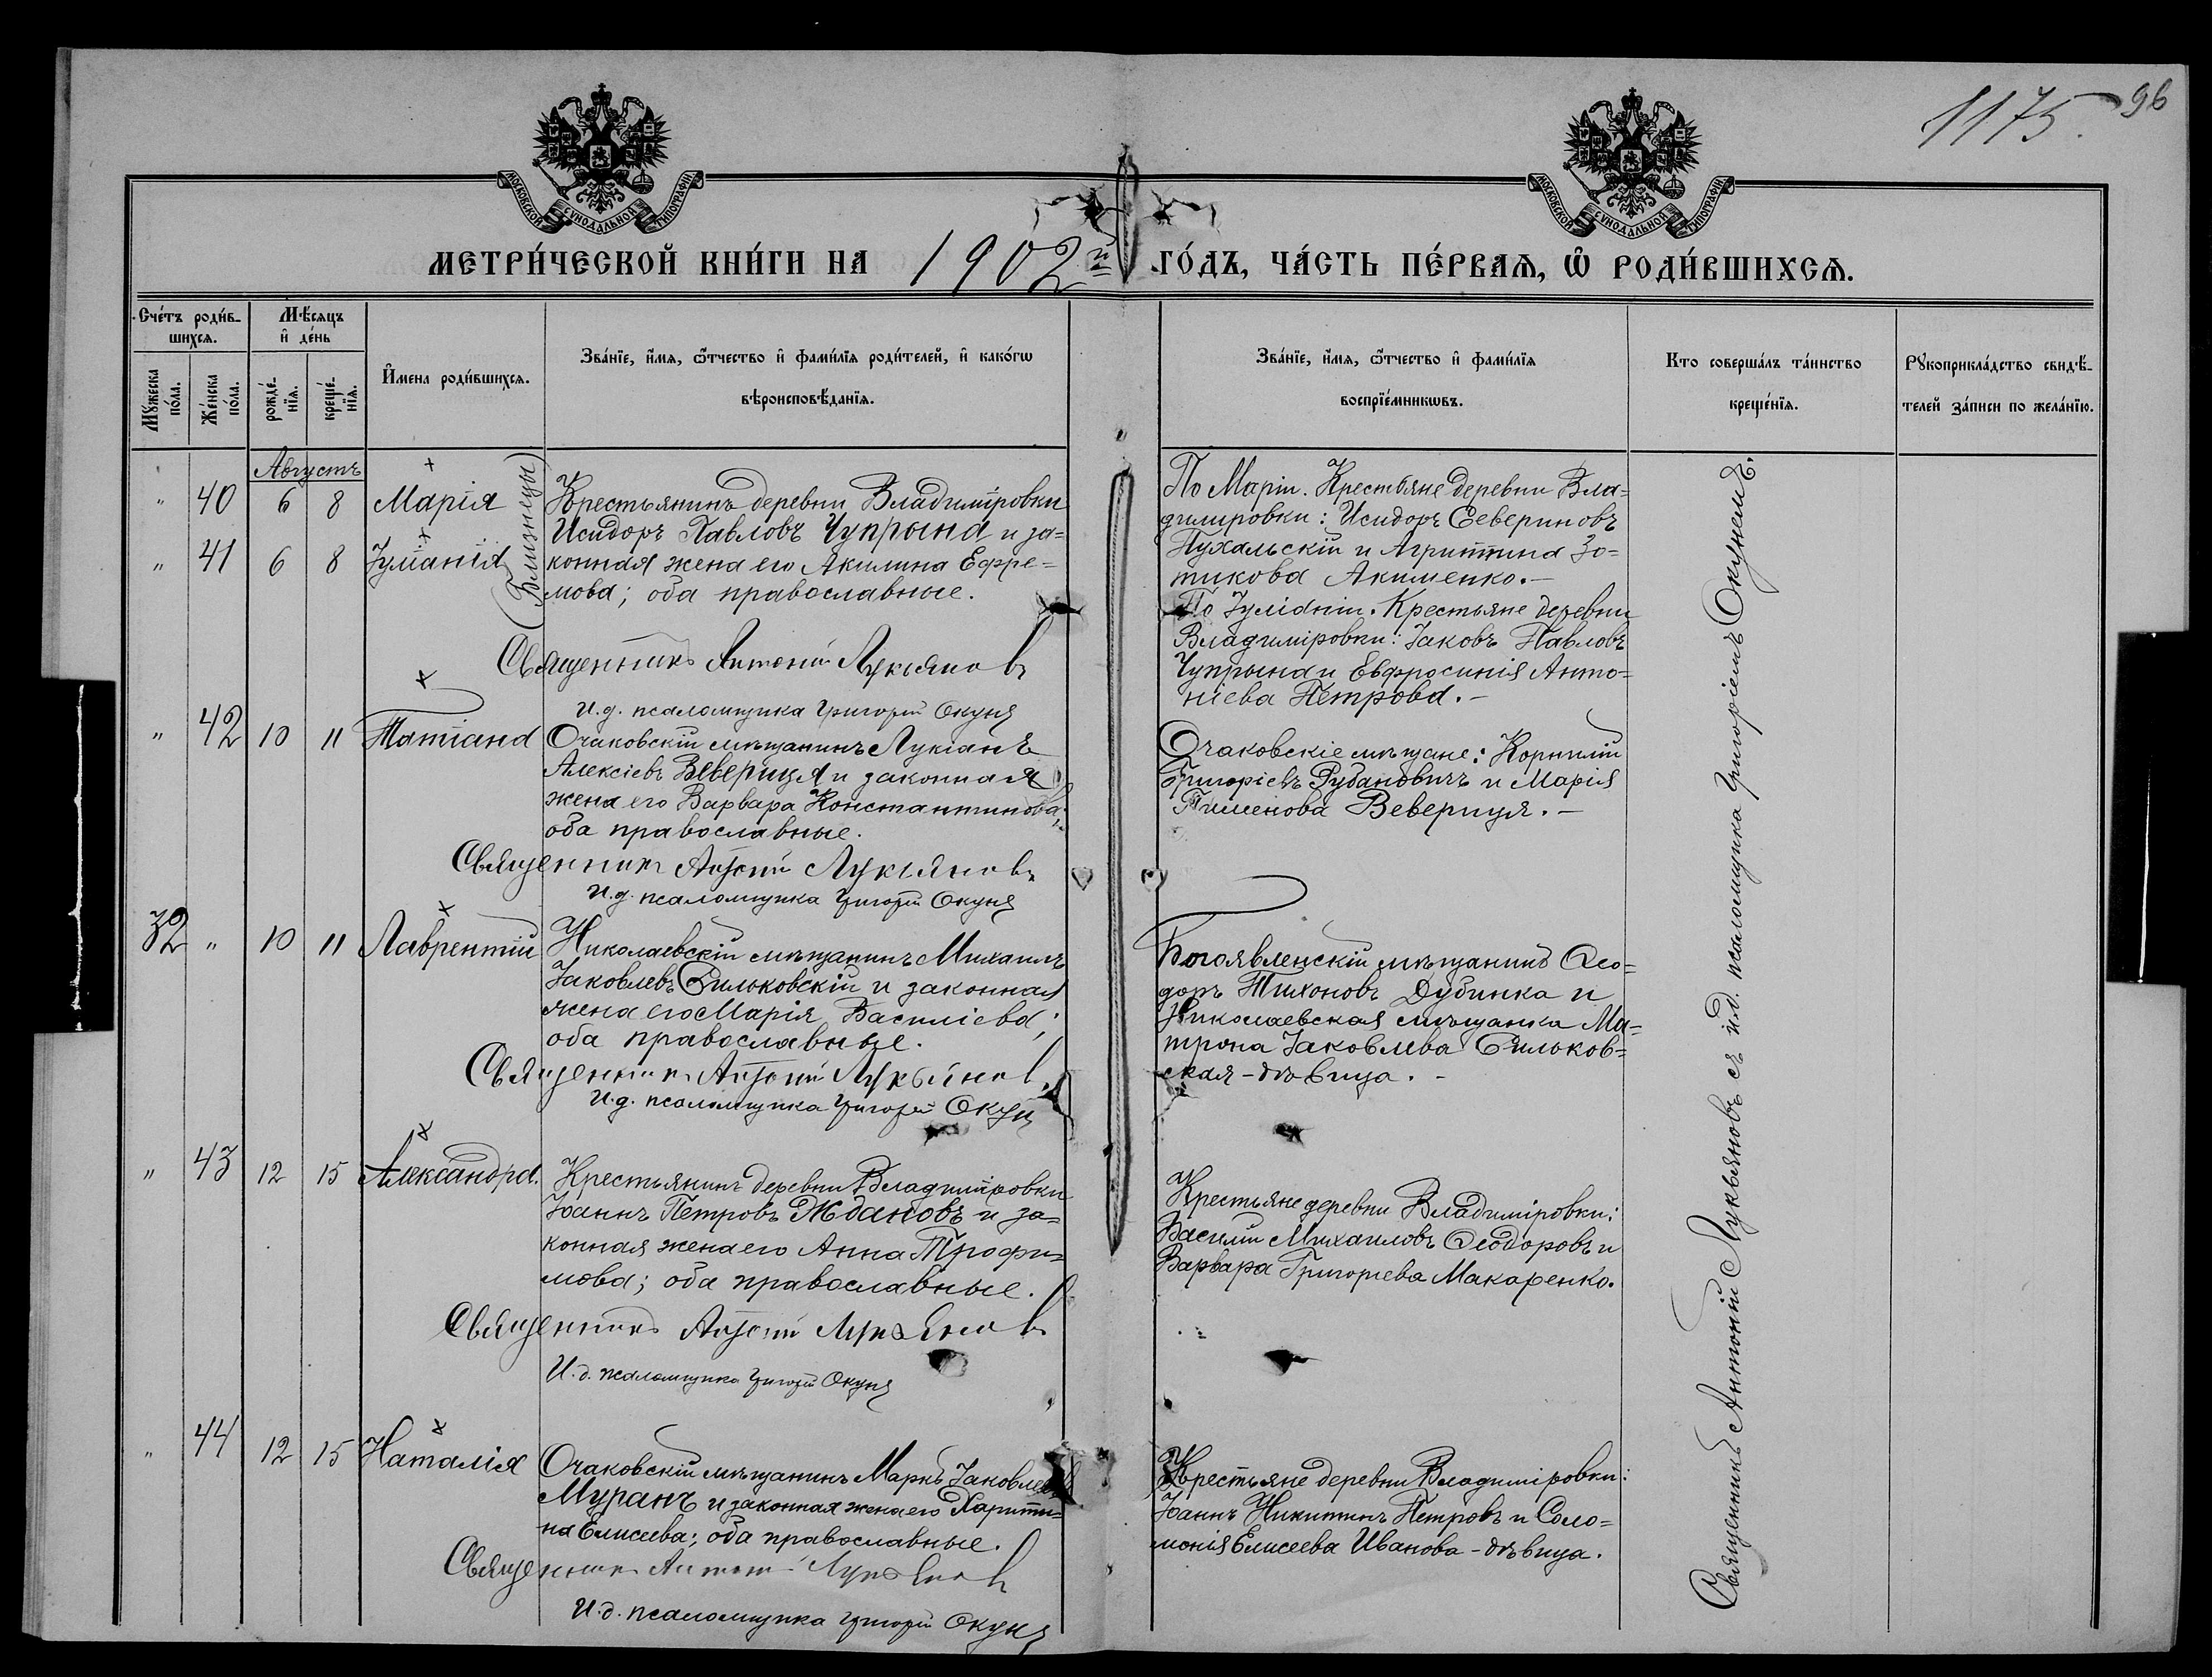 1175.
96
МОСКОВСКОЙ СѴНОДАЛЬНОЙ ТИПОГРАФІИ
МОСКОВСКОЙ СѴНОДАЛЬНОЙ ТИПОГРАФІИ
МЕТРИ́ЧЕСКОЙ КНИ́ГИ НА 1902й ГО́ДЪ, ЧА́СТЬ ПЕ́РВАѦ, Ѡ҆ РОДИ́ВШИХСѦ.
Сче́тъ роди́в-
шихсѧ.
Мꙋ́жеска по́ла.
Же́нска по́ла.
Мѣ́сѧцъ
и҆ де́нь
рожде́-
нїѧ.
креще́-
нїѧ.
И҆мена роди́вшихсѧ.
Зва́нїе, и҆́мѧ, ѻ҆́тчество и҆ фами́лїѧ роди́телей, и҆ како́гѡ
вѣроисповѣ́данїѧ.
Зва́нїе, и҆́мѧ, ѻ҆́тчество и҆ фами́лїѧ
воспрїе́мникѡвъ.
Кто соверша́лъ та́инство
креще́нїѧ.
Рꙋкоприкла́дство свидѣ́-
телей за́писи по жела́нїю.
Августъ
" 40 6 8 Марія
" 41 6 8 Іуліанія
(Близнецы)
Крестьянинъ деревни Владиміровки
Исидоръ Павловъ Чупрына и за=
конная жена его Акилина Ефре=
мова; оба православные.
Священникъ Антоній Лукьяновъ
И.д. псаломщика Григорій Окунь
По Маріи. Крестьяне деревни Вла=
диміровки: Исидоръ Северіновъ
Пухальскій и Агриппина Зо=
тикова Акименко.—
По Іуліаніи. Крестьяне деревни
Владиміровки: Іаковъ Павловъ
Чупрына и Евфросинія Анто=
ніева Петрова.—
" 42 10 11 Татіана
Очаковскій мѣщанинъ Лукіанъ
Алексіевъ Веверица и законная
жена его Варвара Константинова;
оба православные.
Священникъ Антоній Лукьяновъ
И.д. псаломщика Григорій Окунь
Очаковскіе мѣщане: Корнилій
Григоріевъ Рубановичъ и Марія
Пименова Веверица.—
32 " 10 11 Лаврентій
Николаевскій мѣщанинъ Михаилъ
Іаковлевъ Сильковскій и законная
жена его Марія Василіева;
оба православные.
Священникъ Антоній Лукьяновъ
И.д. псаломщика Григорій Окунь
Богоявленскій мѣщанинъ Ѳео=
доръ Тихоновъ Дубинка и
Николаевская мѣщанка Ма=
трона Іаковлева Сильков=
ская - дѣвица.-
" 43 12 15 Александра.
Крестьянинъ деревни Владиміровки
Іоаннъ Петровъ Ждановъ и за=
конная жена его Анна Трофи=
мова; оба православные.
Священникъ Антоній Лукьяновъ
И.д. псаломщика Григорій Окунь
Крестьяне деревни Владиміровки:
Василій Михаиловъ Ѳеодоровъ и
Варвара Григорьева Макаренко.
" 44 12 15 Наталія
Очаковскій мѣщанинъ Маркъ Іаковлевъ
Муранъ и законная жена его Харити=
на Елисеева; оба православные.
Священникъ Антоній Лукьяновъ
И.д. псаломщика Григорій Окунь
Крестьяне деревни Владиміровки:
Іоаннъ Никитинъ Петровъ и Соло=
монія Елисеева Иванова - дѣвица.
Священникъ Антоній Лукьяновъ съ и.д. псаломщика Григоріемъ Окунемъ.